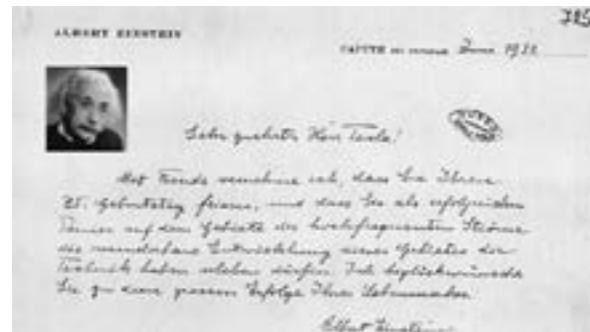 ALBERT EINSTEIN
CAPUTH bei POTSDAM June 1931
Sehr geehrter Herr Tesla!
Mit Freude vernehme ich, dass Sie Ihren
75. Geburtstag feiern, und dass Sie als erfolgreicher
Pionier auf dem Gebiete der hochfrequenten Ströme
die wunderbare Entwicklung dieses Gebietes der
Technik haben erleben dürfen. Ich beglückwünsche
Sie zu dem grossen Erfolge Ihres Lebenswerkes.
Albert Einstein.